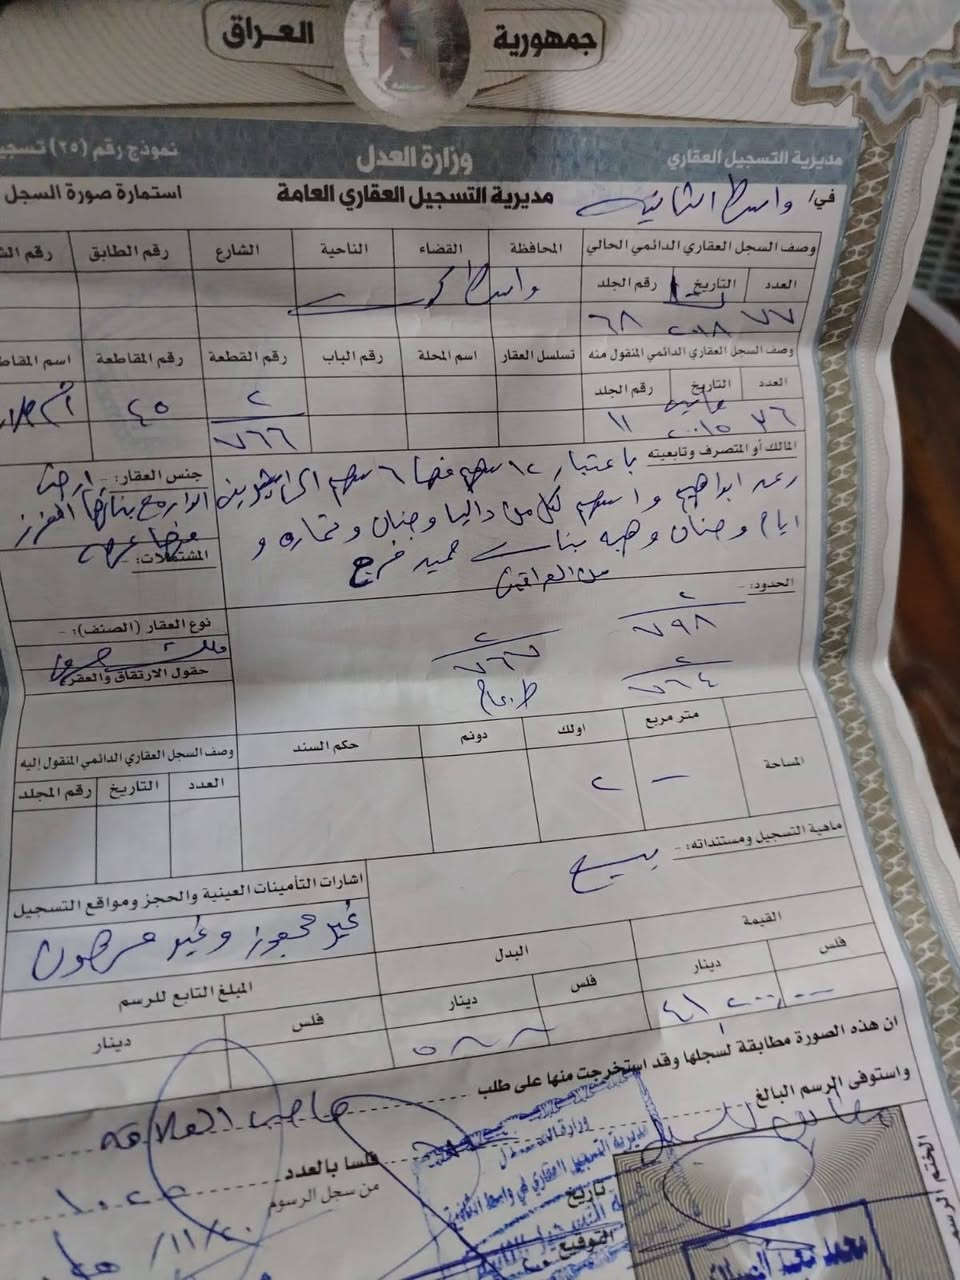 جمهورية العراق
مديرية التسجيل العقاري
وزارة العدل
نموذج رقم (٢٥) تسجيل
في/ واسط الثانية
مديرية التسجيل العقاري العامة
استمارة صورة السجل
وصف السجل العقاري الدائمي الحالي المحافظة القضاء الناحية الشارع رقم الطابق
العدد التاريخ رقم الجلد واسط كوت
٧٧ ٢٠١٨ ٦٨
وصف السجل العقاري الدائمي المنقول منه تسلسل العقار اسم المحلة رقم الباب رقم القطعة رقم المقاطعة
العدد التاريخ رقم الجلد ٢/٧٦٦ ٤٥
٣٦ ٢٠١٥ ١١
المالك أو المتصرف وتابعيته باعتبار ١٢ سهم منها ٦ سهم الى
رعد ابراهيم و١ سهم لكل من داليا وجنان وتماره و
ايام وحنان وهبه بنات حميد فرج
من العراقيين
جنس العقار:- ارض
المشتملات:-
الحدود:-
٢/٧٩٨
٢/٧٦٧
٢/٧٦٤
ط.عام
نوع العقار (الصنف):-
ملك صرف
حقوق الارتفاق والعقر
متر مربع اولك دونم حكم السند
المساحة - ٢
وصف السجل العقاري الدائمي المنقول اليه
العدد التاريخ رقم المجلد
ماهية التسجيل ومستنداته:- بيع
اشارات التأمينات العينية والحجز ومواقع التسجيل
غير محجوز وغير مرهون
القيمة البدل المبلغ التابع للرسم
فلس دينار فلس دينار فلس دينار
ان هذه الصورة مطابقة لسجلها وقد استخرجت منها على طلب صاحب العلاقة
واستوفى الرسم البالغ
فلسا بالعدد
من سجل الرسوم
تاريخ
التوقيع
مديرية التسجيل العقاري في واسط الثانية
الختم الرسمي